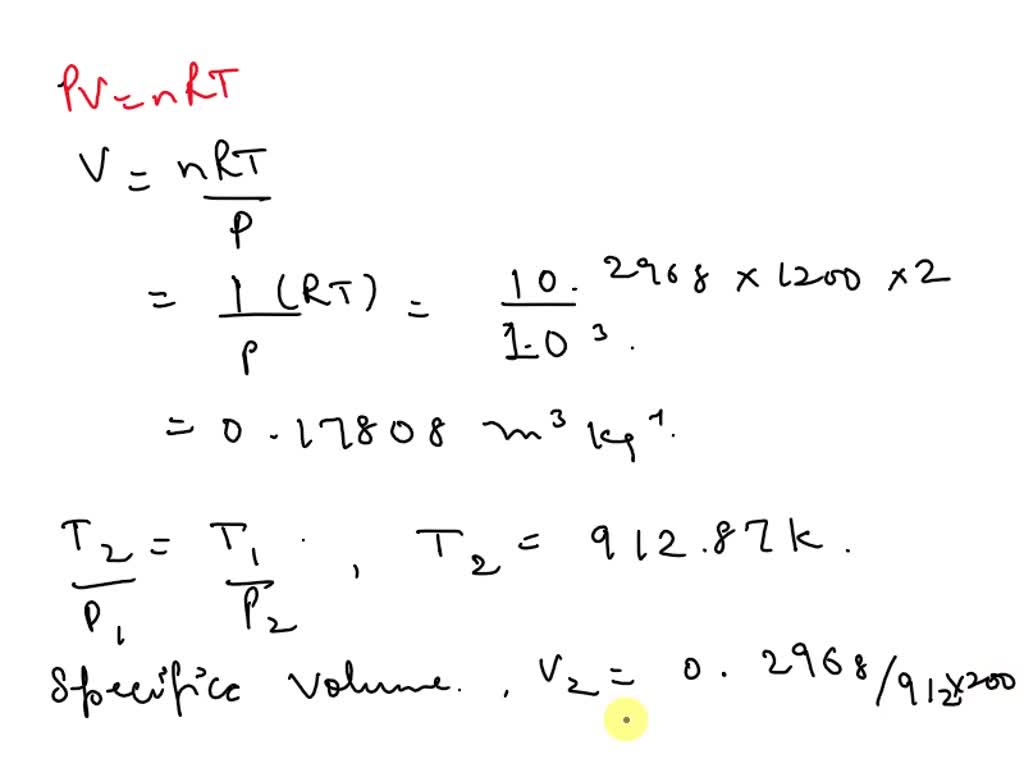 PV = nRT
V = nRT / P
= 1 / P (RT) = 10.2968 × 1200 × 2 / 10³.
= 0.17808 m³ kg⁻¹.
T₂ / P₁ = T₁ / P₂ , T₂ = 912.87 k.
Specific Volume. , V₂ = 0.2968/912×200